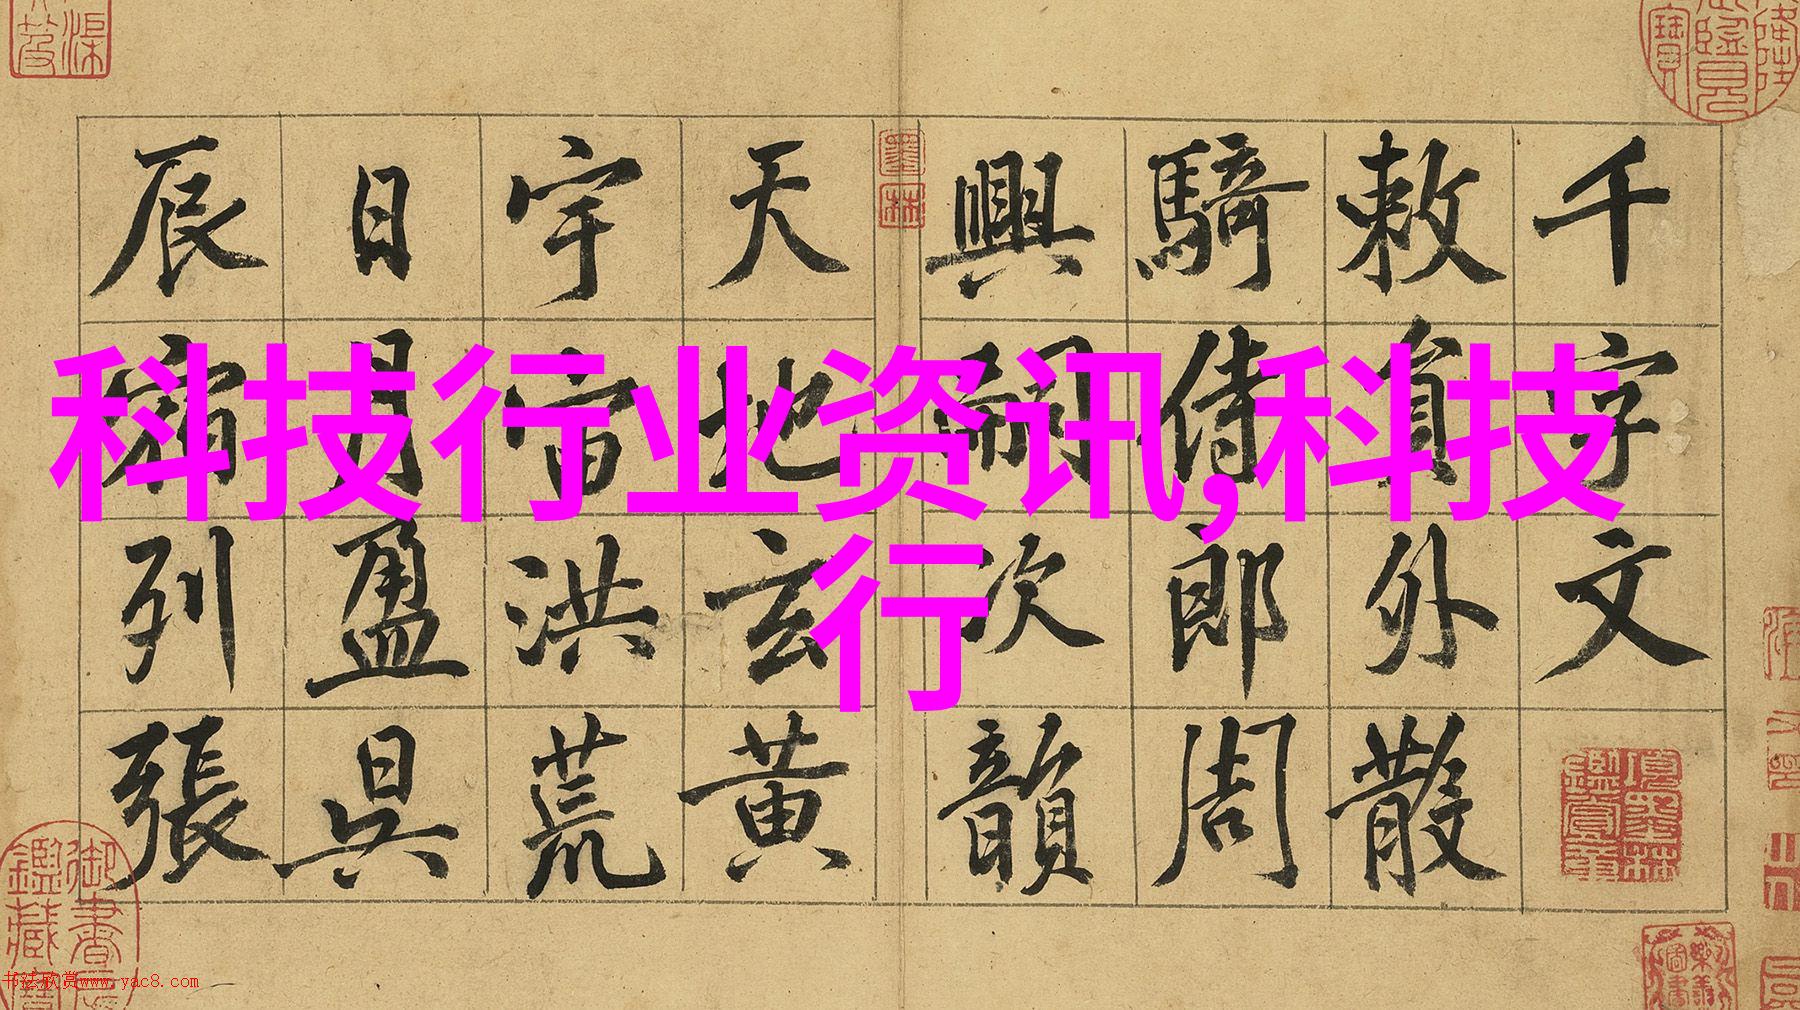 科技行业资讯,科技
行
千字文
敕員外散
騎侍郎周
興嗣次韻
天地玄黄
宇宙洪荒
日月盈昃
辰宿列張
墨林
书法欣赏www.yac8.com